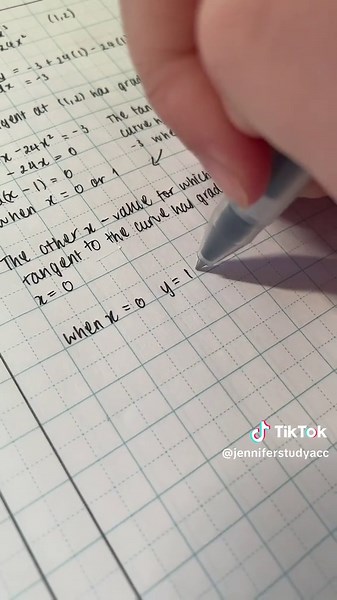 (1,2)
24x²
= -3 + 24(1) - 24(1)
dx = -3
at (1,2) has grad
The tan
x - 24x² = -3
curve
- 24x = 0
-3 whe
(x - 1) = 0
when x = 0 or 1
The other x - value for which
tangent to the curve has grad
x = 0
when x = 0 y = 1
TikTok
@jenniferstudyacc